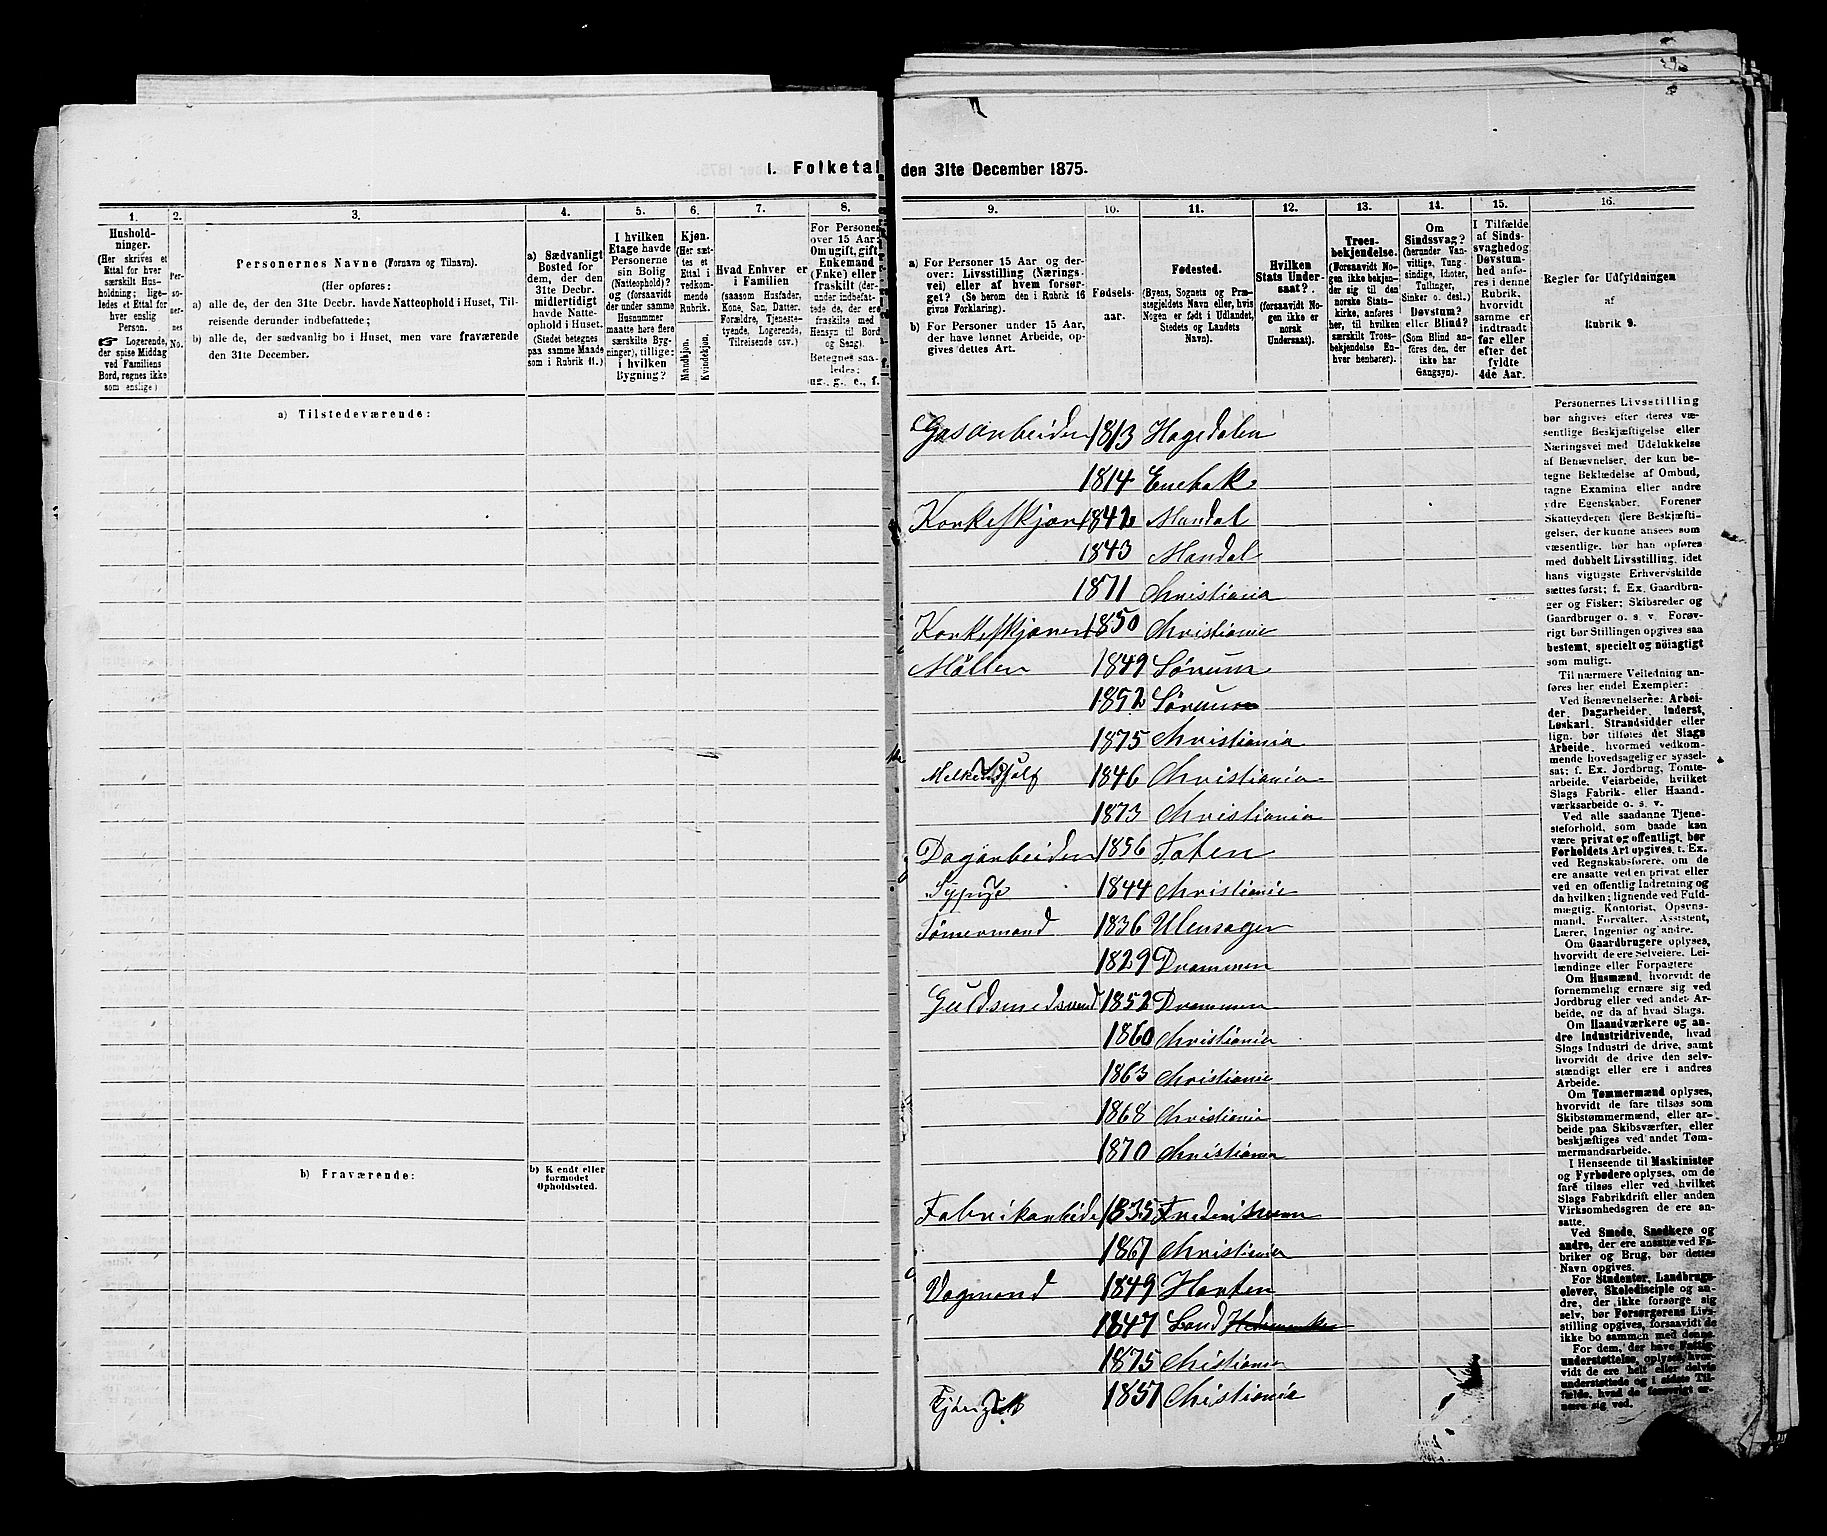 I. Folketal den 31te December 1875.
1. 2. 3. 4. 5. 6. 7. 8.
Husholdninger.
(Her skrives et
Ettal for hver
særskilt Husholdning;
ligeledes
et Ettal for
hver enslig
Person.
Logerende,
der spise Middag
ved Familiens
Bord, regnes ikke
som enslige.)
Personernes No.
Personernes Navne (Fornavn og Tilnavn).
(Her opføres:
a) alle de, der den 31te Decbr. havde Natteophold i Huset, Tilreisende
derunder indbefattede;
b) alle de, sædvanlig bo i Huset, men vare fraværende
den 31te December.
a) Sædvanligt
Bosted for
dem, der den
31te Decbr.
midlertidigt
havde Natteophold
i Huset.
(Stedet betegnes
paa samme Maade
som i Rubrik 11.)
I hvilken
Etage havde
Personerne
sin Bolig
(Natteophold)?
og (forsaavidt
der under samme
Husnummer
maatte høre flere
særskilte Bygninger),
tillige:
i hvilken
Bygning?
Kjøn.
(Her sættes
et
Ettal i
vedkommende
Rubrik.
Mandkjøn.
Kvindekjøn.
Hvad Enhver er
i Familien
(saasom Husfader,
Kone, Søn, Datter.
Forældre, Tjenestetyende,
Logerende,
Tilreisende osv.)
For Personer
over 15 Aar:
Om ugift, gift
Enkemand
(Enke) eller
fraskilt
Betegnes saaledes:
ug., g., e., f.
a) Tilstedeværende:
b) Fraværende:
b) Kjendt eller
formodet
Opholdssted.
9. 10. 11. 12. 13. 14. 15. 16.
a) For Personer 15 Aar og derover:
Livsstilling (Næringsvei)
eller af hvem forsørget?
(Se herom den i Rubrik 16
givne Forklaring).
b) For Personer under 15 Aar,
der have lønnet Arbeide, opgives
dettes Art.
Fødselsaar.
Fødested.
(Byens, Sognets og Præstegjeldets
Navn eller, hvis
Nogen er født i Udlandet,
Stedets og Landets
Navn).
Hvilken
Stats Undersaat?
(forsaavidt Nogen
ikke er
norsk
Undersaat).
Troesbekjendelse.
(Forsaavidt Nogen
ikke bekjender
sig til den
norske Statskirke,
anføres
her, til hvilken
særskilt Troesbekjendelse
Enhver
henhører).
Om
Sindssvag?
(herunder Vanvittige,
Tungsindige,
Idioter,
Tullinger,
Sinker o. desl.)
Døvstum?
eller Blind?
(Som Blind anføres
den, der
ikke har
Gangsyn).
I Tilfælde
af Sindssvaghed
og
Døvstumhed
anføres
i denne
Rubrik,
hvorvidt
samme er
indtraadt
før eller
efter det
fyldte
4de Aar.
Regler før Udfyldningen
af
Rubrik 9.
Gasarbeider 1813 Hagedalen
1814 Enebak
Korkeskjærer 1842 Mandal
1843 Mandal
1871 Christiania
Korkeskjærer 1850 Christiania
Møller 1849 Sørum
1852 Sørum
1875 Christiania
Melkeudsalg 1846 Christiania
1873 Christiania
Dagarbeider 1856 Toten
Sypige 1844 Christiania
Tømermand 1836 Ulensager
1829 Drammen
Guldsmedsvend 1852 Drammen
1860 Christiania
1863 Christiania
1868 Christiania
1870 Christiania
Fabrikarbeide 1835
1867 Christiania
Vogmand 1849 Horten
1847 Land Hedemarken
1875 Christiania
1851 Christiania
Personernes Livsstilling
bør angives efter deres væsentlige
Beskjæftigelse eller
Næringsvei med Udelukkelse
af Benævnelser, der kun betegne
Beklædelse af Ombud,
tagne Examina eller andre
ydre Egenskaber. Forener
Skatteyderen flere Beskjæftigelser,
der kunne ansees som
væsentlige, bør han opføres
med dobbelt Livsstilling, idet
hans vigtigste Erhvervskilde
sættes først; f. Ex. Gaardbruger
og Fisker; Skibsreder og
Gaardbruger o. s. v. Forøvrigt
bør Stillingen opgives saa
bestemt, specielt og nøiagtigt
som muligt.
Til nærmere Veiledning anføres
her endel Exempler:
Ved Benævnelserne: Arbeider,
Dagarbeider, Inderst,
Løskarl, Strandsidder eller
lign. bør tilføres det Slags
Arbeide, hvormed vedkommende
hovedsagelig er sysselsat;
f. Ex. Jordbrug, Tomtearbeide,
Veiarbeide, hvilket
Slags Fabrik- eller Haandværksarbeide
o. s. v.
Ved alle saadanne Tjenesteforhold,
som baade kan
være privat og offentligt, bør
Forholdets Art opgives, f. Ex.
ved Regnskabsførere, om de
ere ansatte ved en privat eller
ved en offentlig Indretning og
da hvilken; lignende ved Fuldmægtig,
Kontorist, Opsynsmand,
Forvalter, Assistent,
Lærer, Ingeniør og andre.
Om Gaardbrugere oplyses,
hvorvidt de ere Selveiere, Leilændinge
eller Forpagtere
Om Husmænd, hvorvidt de
fornemmelig ernære sig ved
Jordbrug eller ved andet Arbeide,
og da af hvad Slags.
Om Haandværkere og andre
Industridrivende, hvad
Slags Industri de drive, samt
hvorvidt de drive den selvstændigt
eller ere i andres
Arbeide.
Om Tømmermænd oplyses,
hvorvidt de fare tilsøs som
Skibstømmermænd, eller arbeide
paa Skibsværfter, eller
beskjæftiges ved andet Tømmermandsarbeide.
I Henseende til Maskinister
og Fyrbødere oplyses, om de
fare tilsøs eller ved hvilket
Slags Fabrikdrift eller anden
Virksomhedsgren de ere ansatte.
Ved Smede, Snedkere og
andre, der ere ansatte ved Fabriker
og Brug, bør dettes
Navn opgives.
For Studenter, Landbrugselever,
Skoledisciple og andre,
der ikke forsørge sig
selv, bør Forsørgerens Livsstilling
opgives, forsaavidt de
ikke bo sammen med denne.
For dem, der have Fattigunderstøttelse,
oplyses, hvorvidt
de ere helt eller delvis
understøttede og i sidste Tilfælde,
hvad de forøvrigt ernære
sig ved.